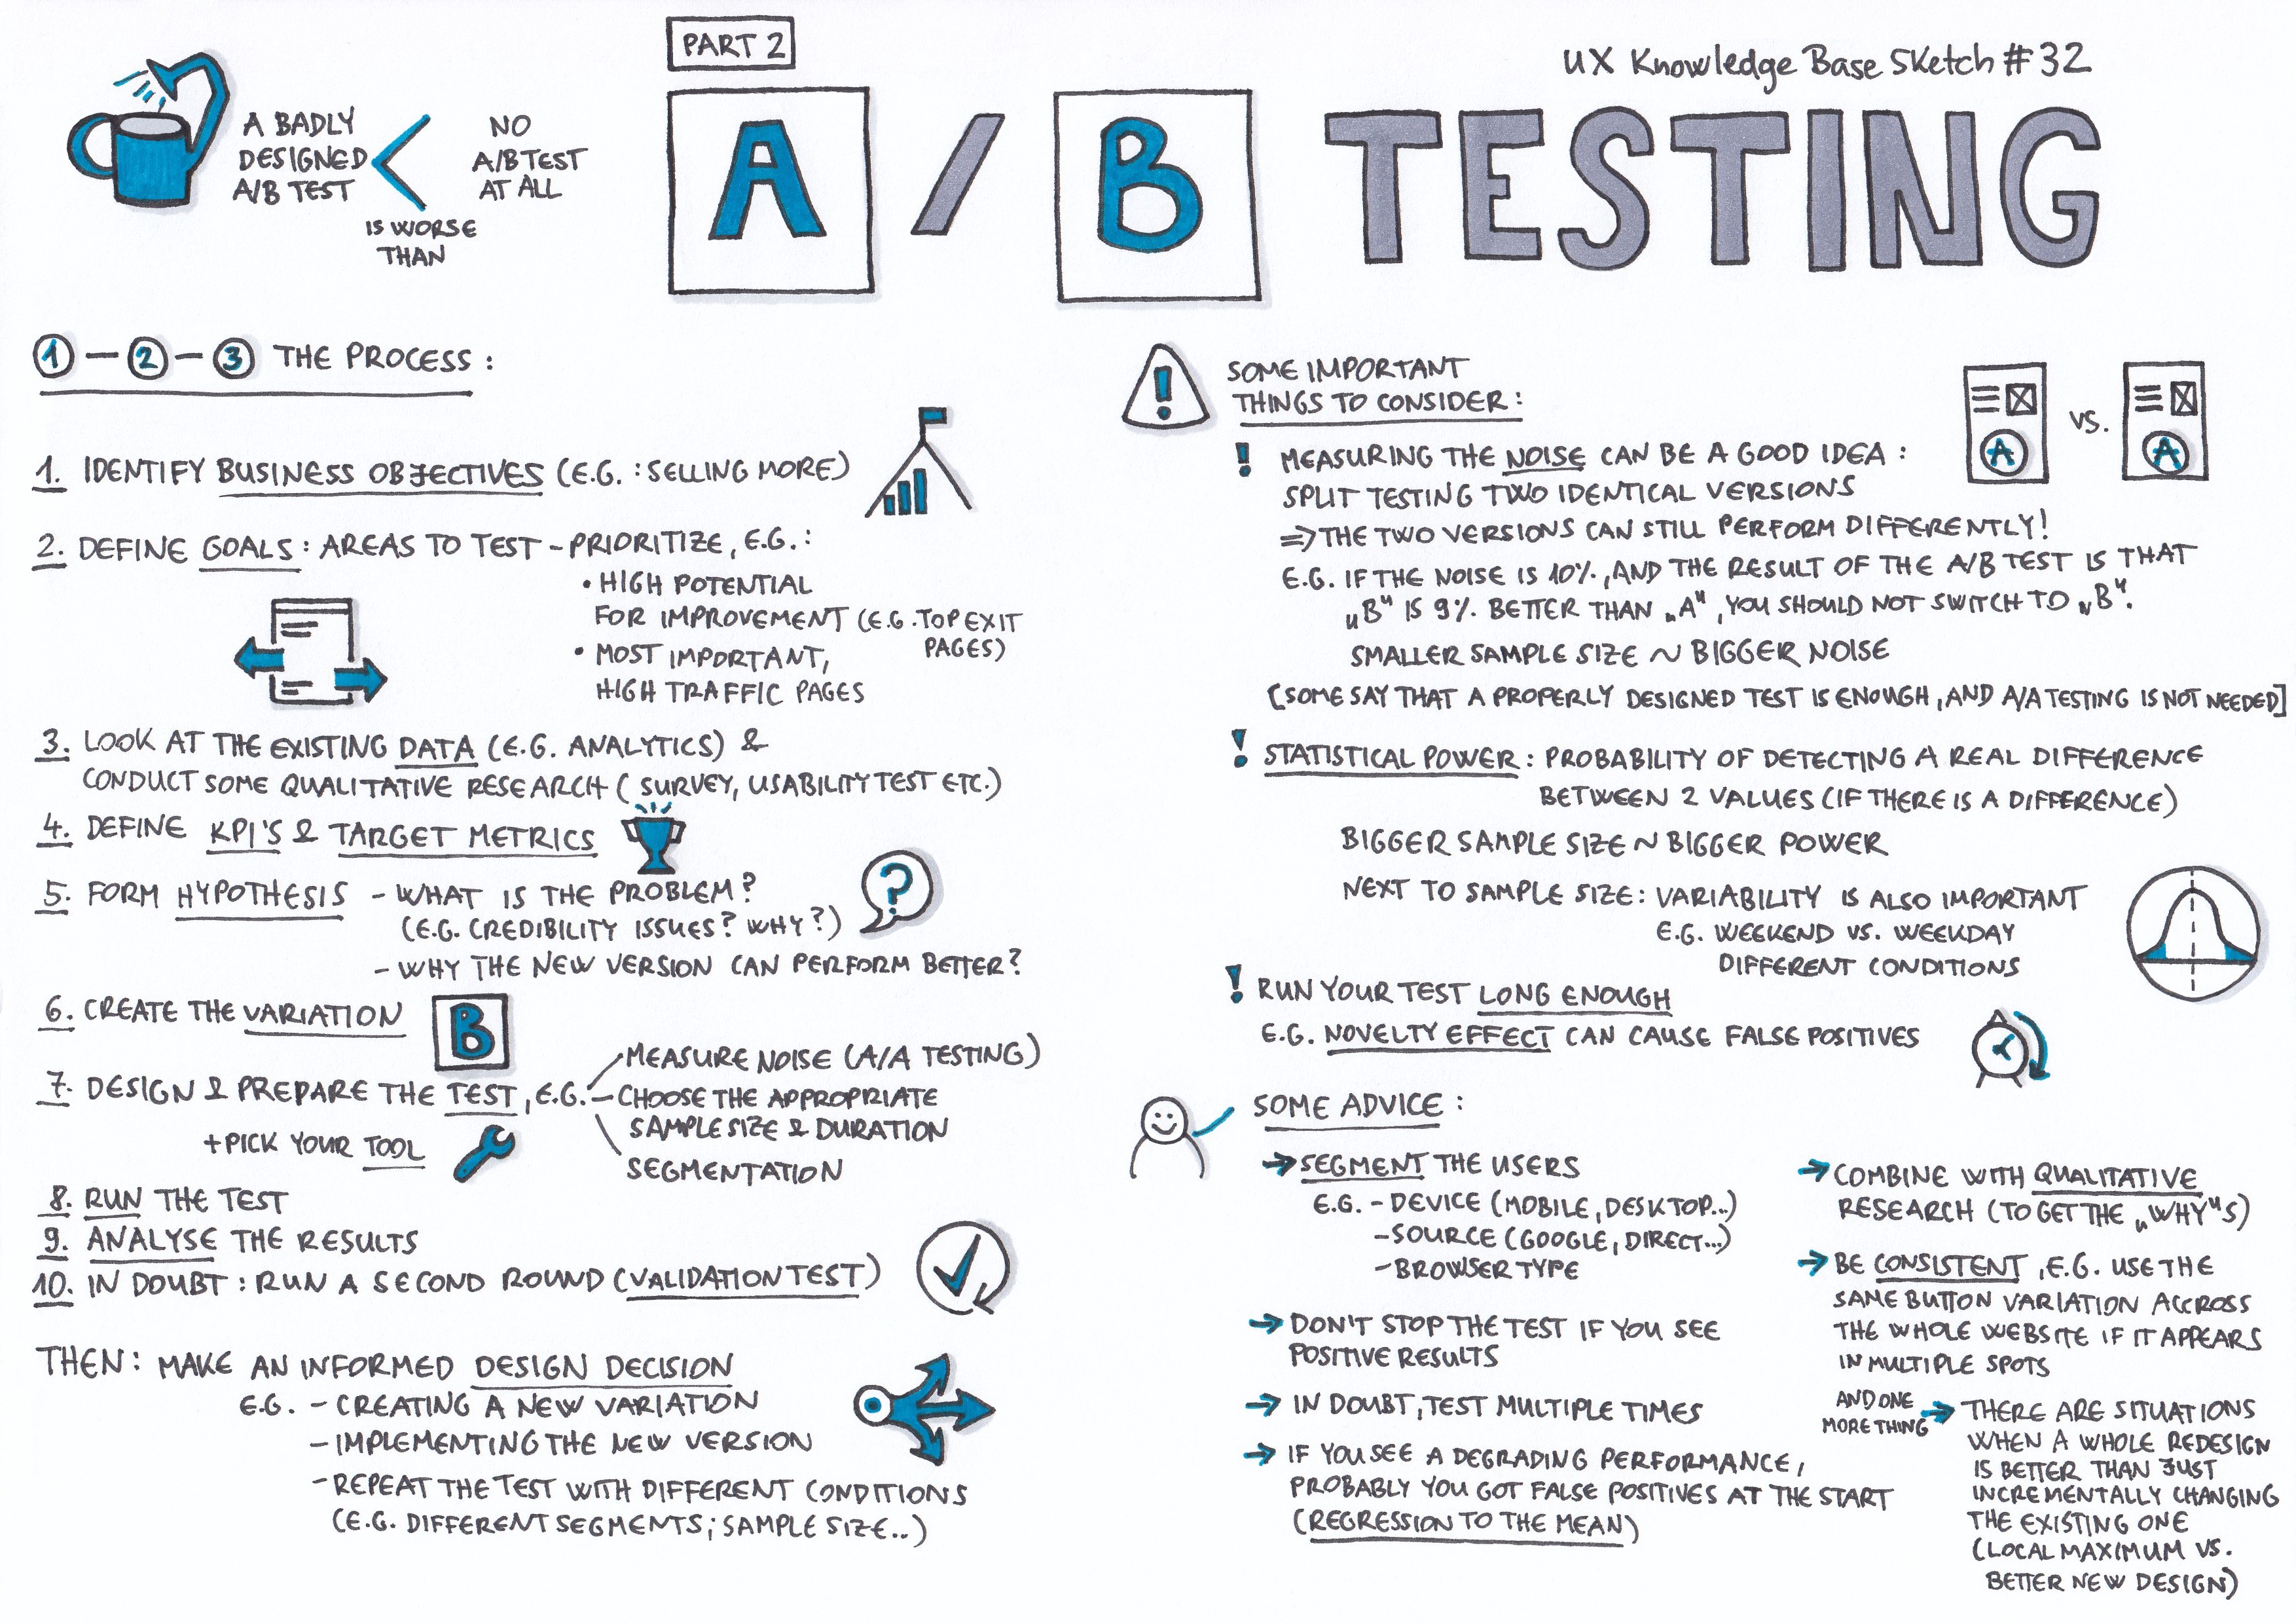 PART 2
UX Knowledge Base Sketch #32
A BADLY
DESIGNED
A/B TEST
<
IS WORSE
THAN
NO
A/B TEST
AT ALL
A / B TESTING
1 - 2 - 3 THE PROCESS:
1. IDENTIFY BUSINESS OBJECTIVES (E.G.: SELLING MORE)
2. DEFINE GOALS: AREAS TO TEST - PRIORITIZE, E.G.:
• HIGH POTENTIAL
FOR IMPROVEMENT (E.G. TOP EXIT
PAGES)
• MOST IMPORTANT,
HIGH TRAFFIC PAGES
3. LOOK AT THE EXISTING DATA (E.G. ANALYTICS) &
CONDUCT SOME QUALITATIVE RESEARCH (SURVEY, USABILITY TEST ETC.)
4. DEFINE KPI'S & TARGET METRICS
5. FORM HYPOTHESIS - WHAT IS THE PROBLEM?
(E.G. CREDIBILITY ISSUES? WHY?)
- WHY THE NEW VERSION CAN PERFORM BETTER?
?
6. CREATE THE VARIATION
B
7. DESIGN & PREPARE THE TEST, E.G.
MEASURE NOISE (A/A TESTING)
- CHOOSE THE APPROPRIATE
SAMPLE SIZE & DURATION
SEGMENTATION
+ PICK YOUR TOOL
8. RUN THE TEST
9. ANALYSE THE RESULTS
10. IN DOUBT: RUN A SECOND ROUND (VALIDATION TEST)
THEN: MAKE AN INFORMED DESIGN DECISION
E.G. - CREATING A NEW VARIATION
- IMPLEMENTING THE NEW VERSION
- REPEAT THE TEST WITH DIFFERENT CONDITIONS
(E.G. DIFFERENT SEGMENTS; SAMPLE SIZE..)
! SOME IMPORTANT
THINGS TO CONSIDER:
A VS. A
! MEASURING THE NOISE CAN BE A GOOD IDEA:
SPLIT TESTING TWO IDENTICAL VERSIONS
=> THE TWO VERSIONS CAN STILL PERFORM DIFFERENTLY!
E.G. IF THE NOISE IS 10%, AND THE RESULT OF THE A/B TEST IS THAT
„B" IS 9% BETTER THAN „A", YOU SHOULD NOT SWITCH TO „B".
SMALLER SAMPLE SIZE ~ BIGGER NOISE
[SOME SAY THAT A PROPERLY DESIGNED TEST IS ENOUGH, AND A/A TESTING IS NOT NEEDED]
! STATISTICAL POWER: PROBABILITY OF DETECTING A REAL DIFFERENCE
BETWEEN 2 VALUES (IF THERE IS A DIFFERENCE)
BIGGER SAMPLE SIZE ~ BIGGER POWER
NEXT TO SAMPLE SIZE: VARIABILITY IS ALSO IMPORTANT
E.G. WEEKEND VS. WEEKDAY
DIFFERENT CONDITIONS
! RUN YOUR TEST LONG ENOUGH
E.G. NOVELTY EFFECT CAN CAUSE FALSE POSITIVES
SOME ADVICE:
→ SEGMENT THE USERS
E.G. - DEVICE (MOBILE, DESKTOP...)
- SOURCE (GOOGLE, DIRECT...)
- BROWSER TYPE
→ DON'T STOP THE TEST IF YOU SEE
POSITIVE RESULTS
→ IN DOUBT, TEST MULTIPLE TIMES
→ IF YOU SEE A DEGRADING PERFORMANCE,
PROBABLY YOU GOT FALSE POSITIVES AT THE START
(REGRESSION TO THE MEAN)
→ COMBINE WITH QUALITATIVE
RESEARCH (TO GET THE „WHY"S)
→ BE CONSISTENT, E.G. USE THE
SAME BUTTON VARIATION ACCROSS
THE WHOLE WEBSITE IF IT APPEARS
IN MULTIPLE SPOTS
AND ONE
MORE THING
→ THERE ARE SITUATIONS
WHEN A WHOLE REDESIGN
IS BETTER THAN JUST
INCREMENTALLY CHANGING
THE EXISTING ONE
(LOCAL MAXIMUM VS.
BETTER NEW DESIGN)